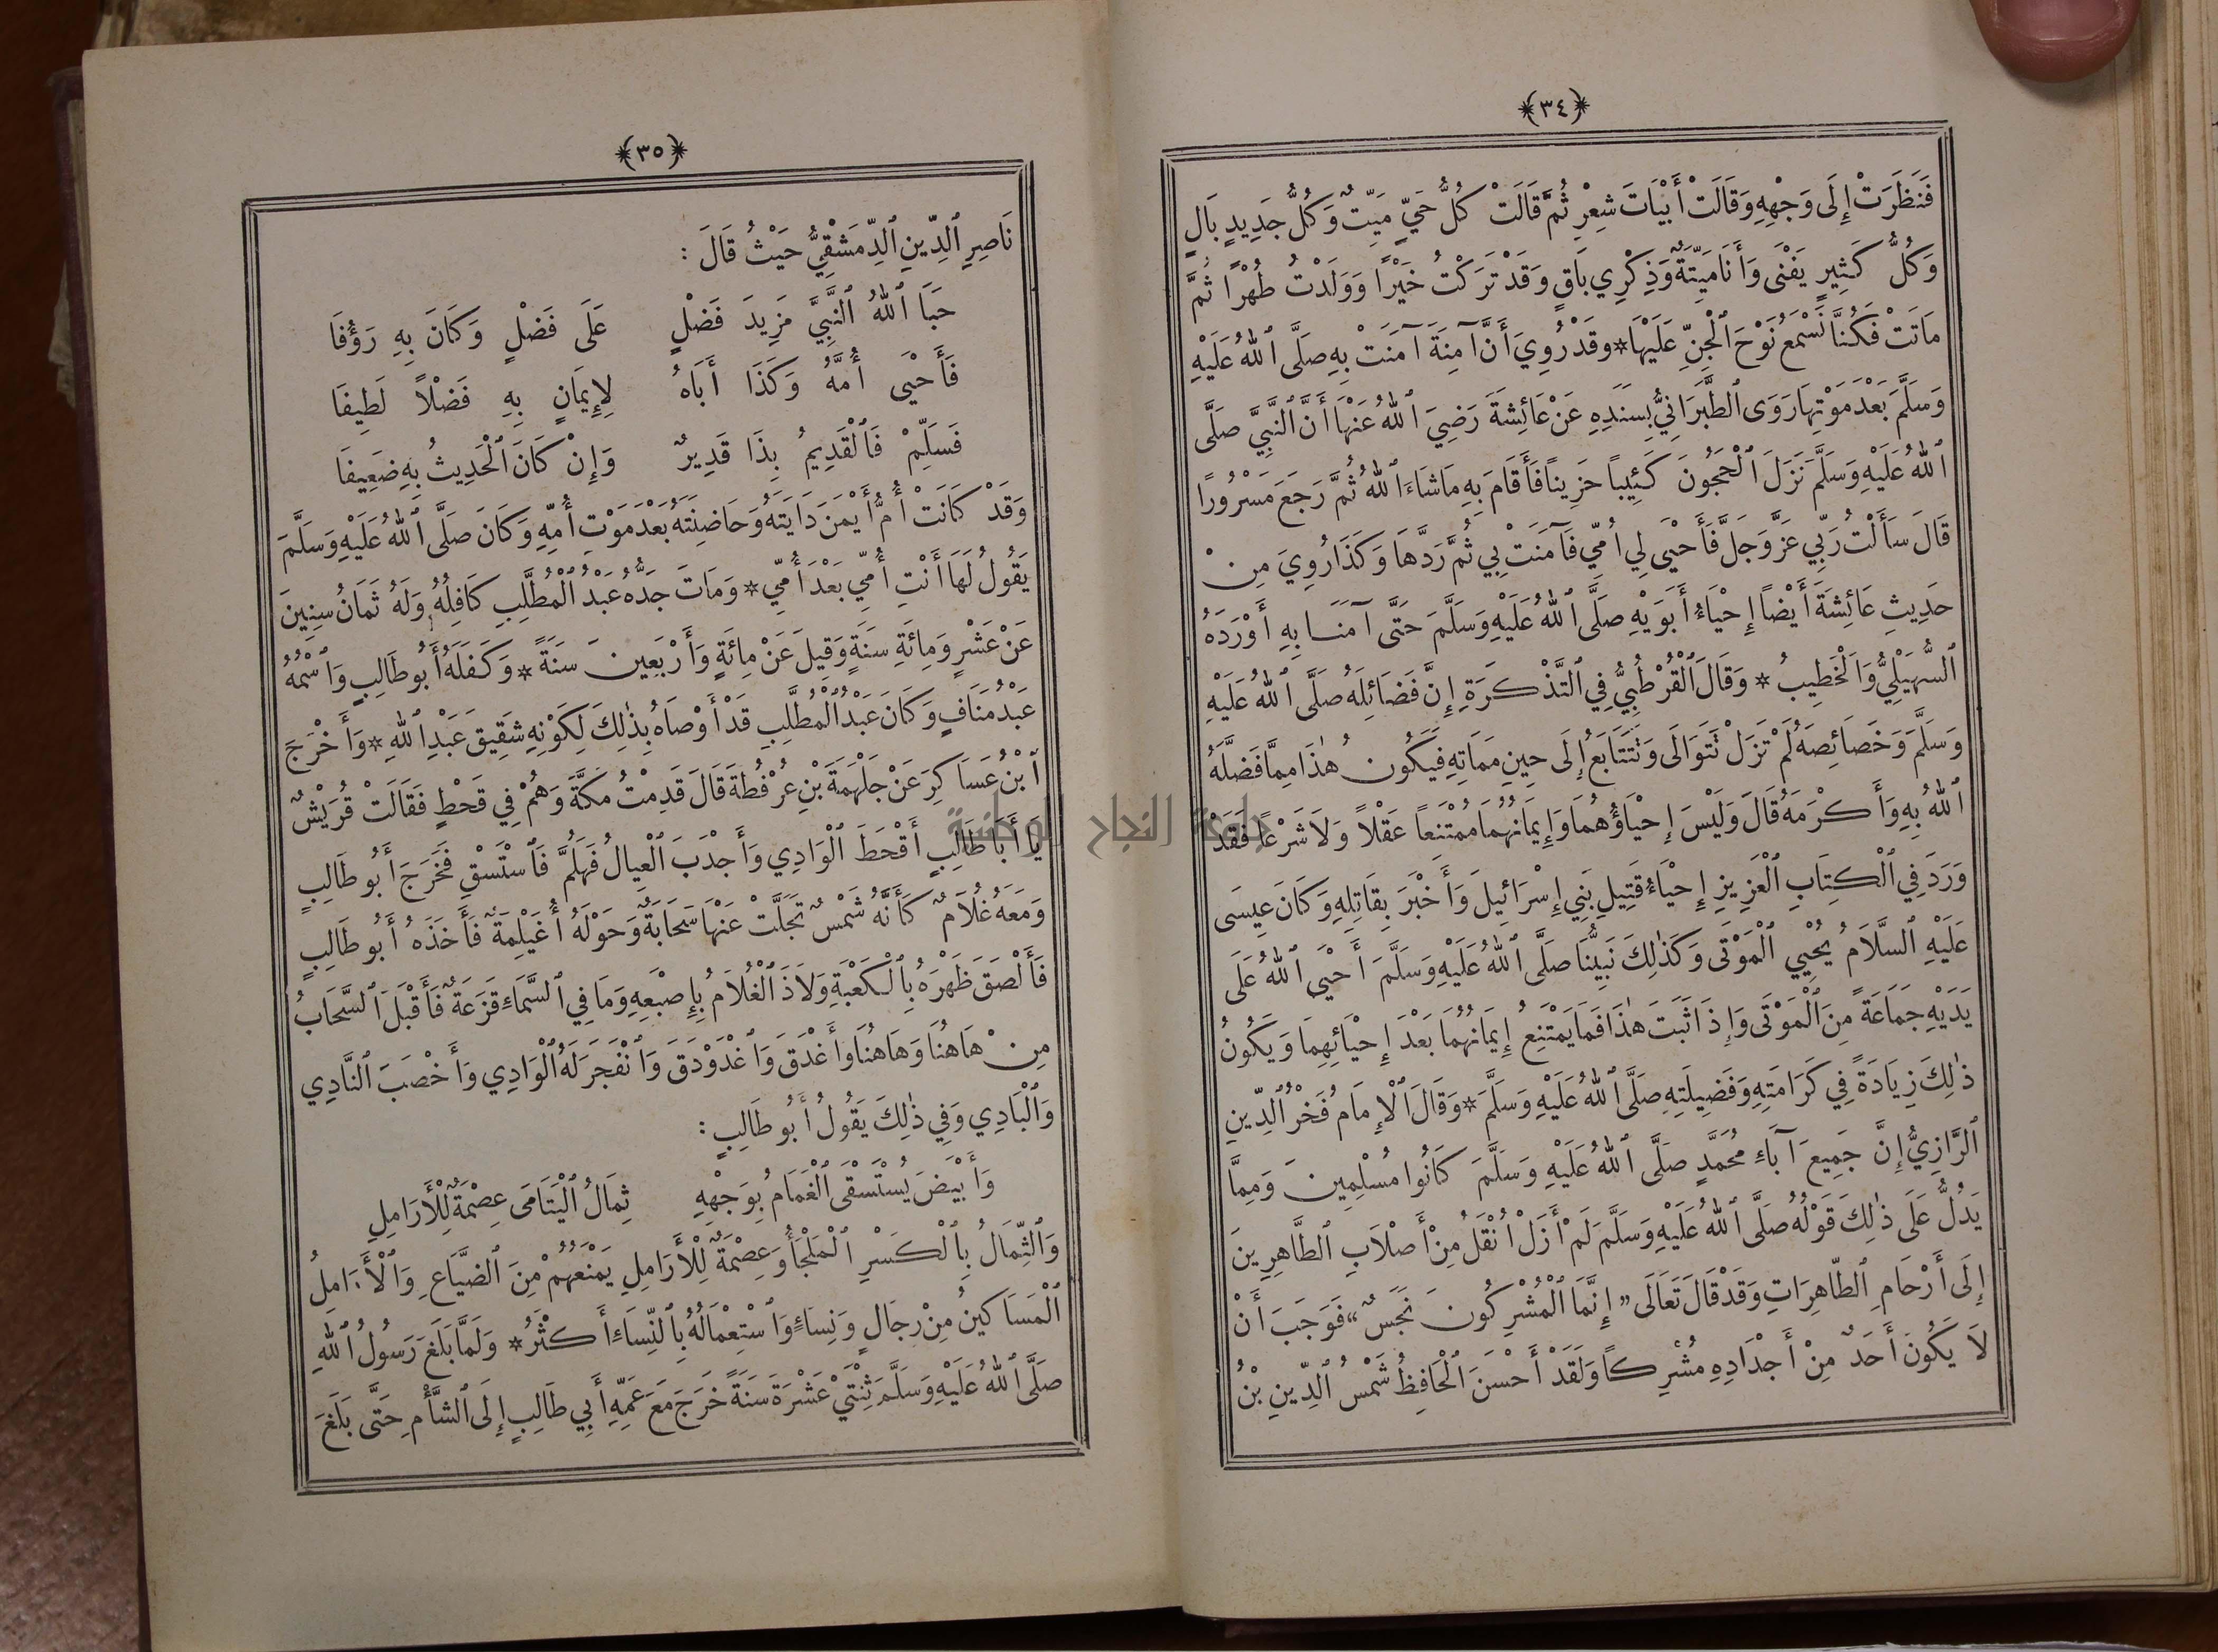 ﴿٣٤﴾
فَنَظَرَتْ إِلَى وَجْهِهِ وَقَالَتْ أَبْيَاتَ شِعْرٍ ثُمَّ قَالَتْ كُلُّ حَيٍّ مَيِّتٌ وَكُلُّ جَدِيدٍ بَالٍ
وَكُلُّ كَثِيرٍ يَفْنَى وَأَنَا مَيِّتَةٌ وَذِكْرِي بَاقٍ وَقَدْ تَرَكْتُ خَيْرًا وَوَلَدْتُ طُهْرًا ثُمَّ
مَاتَتْ فَكُنَّا نَسْمَعُ نَوْحَ ٱلْجِنِّ عَلَيْهَا * وَقَدْ رُوِيَ أَنَّ آمِنَةَ آمَنَتْ بِهِ صَلَّى ٱللهُ عَلَيْهِ
وَسَلَّمَ بَعْدَ مَوْتِهَا رَوَى ٱلطَّبَرَانِيُّ بِسَنَدِهِ عَنْ عَائِشَةَ رَضِيَ ٱللهُ عَنْهَا أَنَّ ٱلنَّبِيَّ صَلَّى
ٱللهُ عَلَيْهِ وَسَلَّمَ نَزَلَ ٱلْحَجُونَ كَئِيبًا حَزِينًا فَأَقَامَ بِهِ مَا شَاءَ ٱللهُ ثُمَّ رَجَعَ مَسْرُورًا
قَالَ سَأَلْتُ رَبِّي عَزَّ وَجَلَّ فَأَحْيَى لِي أُمِّي فَآمَنَتْ بِي ثُمَّ رَدَّهَا وَكَذَا رُوِيَ مِنْ
حَدِيثِ عَائِشَةَ أَيْضًا إِحْيَاءُ أَبَوَيْهِ صَلَّى ٱللهُ عَلَيْهِ وَسَلَّمَ حَتَّى آمَنَا بِهِ أَوْرَدَهُ
ٱلسُّهَيْلِيُّ وَٱلْخَطِيبُ * وَقَالَ ٱلْقُرْطُبِيُّ فِي ٱلتَّذْكِرَةِ إِنَّ فَضَائِلَهُ صَلَّى ٱللهُ عَلَيْهِ
وَسَلَّمَ وَخَصَائِصَهُ لَمْ تَزَلْ تَتَوَالَى وَتَتَتَابَعُ إِلَى حِينِ مَمَاتِهِ فَيَكُونُ هٰذَا مِمَّا فَضَّلَهُ
ٱللهُ بِهِ وَأَكْرَمَهُ قَالَ وَلَيْسَ إِحْيَاؤُهُمَا وَإِيمَانُهُمَا مُمْتَنِعًا عَقْلاً وَلَا شَرْعًا فَقَدْ
وَرَدَ فِي ٱلْكِتَابِ ٱلْعَزِيزِ إِحْيَاءُ قَتِيلِ بَنِي إِسْرَائِيلَ وَأَخْبَرَ بِقَاتِلِهِ وَكَانَ عِيسَى
عَلَيْهِ ٱلسَّلَامُ يُحْيِي ٱلْمَوْتَى وَكَذٰلِكَ نَبِيُّنَا صَلَّى ٱللهُ عَلَيْهِ وَسَلَّمَ أَحْيَى ٱللهُ عَلَى
يَدَيْهِ جَمَاعَةً مِنَ ٱلْمَوْتَى وَإِذَا ثَبَتَ هٰذَا فَمَا يَمْتَنِعُ إِيمَانُهُمَا بَعْدَ إِحْيَائِهِمَا وَيَكُونُ
ذٰلِكَ زِيَادَةً فِي كَرَامَتِهِ وَفَضِيلَتِهِ صَلَّى ٱللهُ عَلَيْهِ وَسَلَّمَ * وَقَالَ ٱلْإِمَامُ فَخْرُ ٱلدِّينِ
ٱلرَّازِيُّ إِنَّ جَمِيعَ آبَاءِ مُحَمَّدٍ صَلَّى ٱللهُ عَلَيْهِ وَسَلَّمَ كَانُوا مُسْلِمِينَ وَمِمَّا
يَدُلُّ عَلَى ذٰلِكَ قَوْلُهُ صَلَّى ٱللهُ عَلَيْهِ وَسَلَّمَ لَمْ أَزَلْ أُنْقَلُ مِنْ أَصْلَابِ ٱلطَّاهِرِينَ
إِلَى أَرْحَامِ ٱلطَّاهِرَاتِ وَقَدْ قَالَ تَعَالَى ”إِنَّمَا ٱلْمُشْرِكُونَ نَجَسٌ“ فَوَجَبَ أَنْ
لَا يَكُونَ أَحَدٌ مِنْ أَجْدَادِهِ مُشْرِكًا وَلَقَدْ أَحْسَنَ ٱلْحَافِظُ شَمْسُ ٱلدِّينِ بْنُ
﴿٣٥﴾
نَاصِرِ ٱلدِّينِ ٱلدِّمَشْقِيُّ حَيْثُ قَالَ :
حَبَا ٱللهُ ٱلنَّبِيَّ مَزِيدَ فَضْلٍ عَلَى فَضْلٍ وَكَانَ بِهِ رَؤُفَا
فَأَحْيَى أُمَّهُ وَكَذَا أَبَاهُ لِإِيمَانٍ بِهِ فَضْلًا لَطِيفَا
فَسَلِّمْ فَٱلْقَدِيمُ بِذَا قَدِيرٌ وَإِنْ كَانَ ٱلْحَدِيثُ بِهِ ضَعِيفَا
وَقَدْ كَانَتْ أُمُّ أَيْمَنَ دَايَتَهُ وَحَاضِنَتَهُ بَعْدَ مَوْتِ أُمِّهِ وَكَانَ صَلَّى ٱللهُ عَلَيْهِ وَسَلَّمَ
يَقُولُ لَهَا أَنْتِ أُمِّي بَعْدَ أُمِّي * وَمَاتَ جَدُّهُ عَبْدُ ٱلْمُطَّلِبِ كَافِلُهُ وَلَهُ ثَمَانُ سِنِينَ
عَنْ عَشْرٍ وَمِائَةِ سَنَةٍ وَقِيلَ عَنْ مِائَةٍ وَأَرْبَعِينَ سَنَةً * وَكَفَلَهُ أَبُو طَالِبٍ وَٱسْمُهُ
عَبْدُ مَنَافٍ وَكَانَ عَبْدُ ٱلْمُطَّلِبِ قَدْ أَوْصَاهُ بِذٰلِكَ لِكَوْنِهِ شَقِيقَ عَبْدِ ٱللهِ * وَأَخْرَجَ
ٱبْنُ عَسَاكِرَ عَنْ جَلْهَمَةَ بْنِ عُرْفُطَةَ قَالَ قَدِمْتُ مَكَّةَ وَهُمْ فِي قَحْطٍ فَقَالَتْ قُرَيْشٌ
يَا أَبَا طَالِبٍ أَقْحَطَ ٱلْوَادِي وَأَجْدَبَ ٱلْعِيَالُ فَهَلُمَّ فَٱسْتَسْقِ فَخَرَجَ أَبُو طَالِبٍ
وَمَعَهُ غُلَامٌ كَأَنَّهُ شَمْسٌ تَجَلَّتْ عَنْهَا سَحَابَةٌ وَحَوْلَهُ أُغَيْلِمَةٌ فَأَخَذَهُ أَبُو طَالِبٍ
فَأَلْصَقَ ظَهْرَهُ بِٱلْكَعْبَةِ وَلَاذَ ٱلْغُلَامُ بِإِصْبَعِهِ وَمَا فِي ٱلسَّمَاءِ قَزَعَةٌ فَأَقْبَلَ ٱلسَّحَابُ
مِنْ هَاهُنَا وَهَاهُنَا وَأَغْدَقَ وَٱغْدَوْدَقَ وَٱنْفَجَرَ لَهُ ٱلْوَادِي وَأَخْصَبَ ٱلنَّادِي
وَٱلْبَادِي وَفِي ذٰلِكَ يَقُولُ أَبُو طَالِبٍ :
وَأَبْيَضَ يُسْتَسْقَى ٱلْغَمَامُ بِوَجْهِهِ ثِمَالُ ٱلْيَتَامَى عِصْمَةٌ لِلْأَرَامِلِ
وَٱلثِّمَالُ بِٱلْكَسْرِ ٱلْمَلْجَأُ وَعِصْمَةٌ لِلْأَرَامِلِ يَمْنَعُهُمْ مِنَ ٱلضَّيَاعِ وَٱلْأَرَامِلُ
ٱلْمَسَاكِينُ مِنْ رِجَالٍ وَنِسَاءٍ وَٱسْتِعْمَالُهُ بِٱلنِّسَاءِ أَكْثَرُ * وَلَمَّا بَلَغَ رَسُولُ ٱللهِ
صَلَّى ٱللهُ عَلَيْهِ وَسَلَّمَ ثِنْتَيْ عَشْرَةَ سَنَةً خَرَجَ مَعَ عَمِّهِ أَبِي طَالِبٍ إِلَى ٱلشَّأْمِ حَتَّى بَلَغَ
جامعة النجاح الوطنية